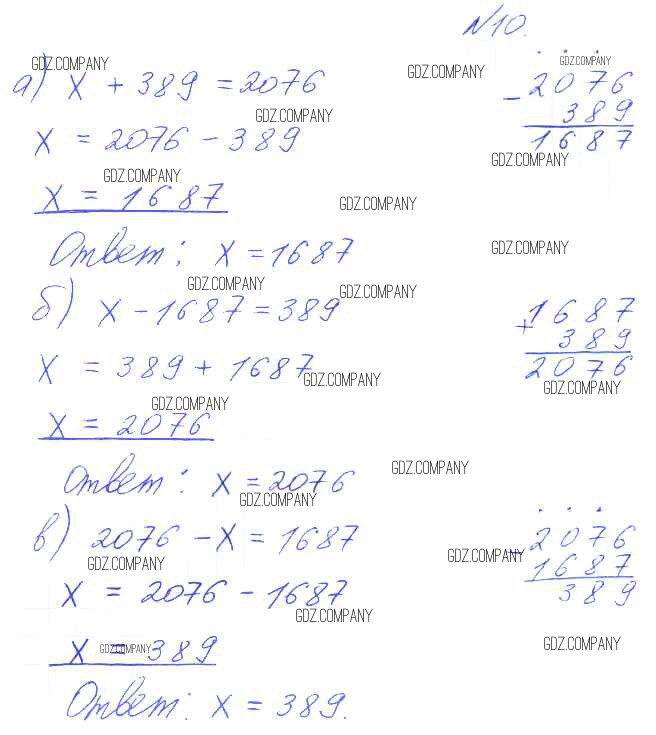 №10.
GDZ.COMPANY GDZ.COMPANY
а) x + 389 = 2076 GDZ.COMPANY 2076
GDZ.COMPANY − 389
x = 2076 − 389 1687
GDZ.COMPANY GDZ.COMPANY
x = 1687 GDZ.COMPANY
Ответ: x = 1687 GDZ.COMPANY
GDZ.COMPANY GDZ.COMPANY
б) x − 1687 = 389 1687
+ 389
x = 389 + 1687 2076
GDZ.COMPANY GDZ.COMPANY
GDZ.COMPANY
x = 2076
GDZ.COMPANY
Ответ: x = 2076
GDZ.COMPANY
в) 2076 − x = 1687 − 2076
GDZ.COMPANY GDZ.COMPANY 1687
x = 2076 − 1687 389
GDZ.COMPANY
x = 389 GDZ.COMPANY GDZ.COMPANY
Ответ: x = 389.